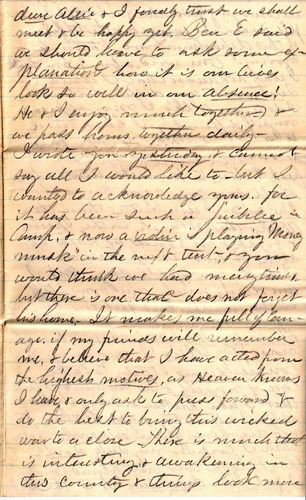 dear Allie & I firmly trust we shall
meet & be happy yet. Ben E said
we should have to ask some ex-
planation how it is our
look so well in our absence!
He & I enjoy much together &
we pass hours together daily –
I wrote you yesterday & cannot
say all I would like to – but I
wanted to acknowledge yours. for
it has been such a Jubilee in
Camp, & now a violin is playing Money
musk in the next tent, & you
would think we had merry times
but there is one that does not forget
his home. It makes me full of cour-
age, if my friends will remember
me, & believe that I have acted from
the highest motives, as Heaven knows
I have & only ask to press forward &
do the best to bring this wicked
war to a close. There is much that
is interesting & awakening in
this country & things look more